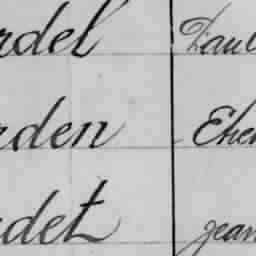 rdel Paul
rden Ehen
rdet Jean